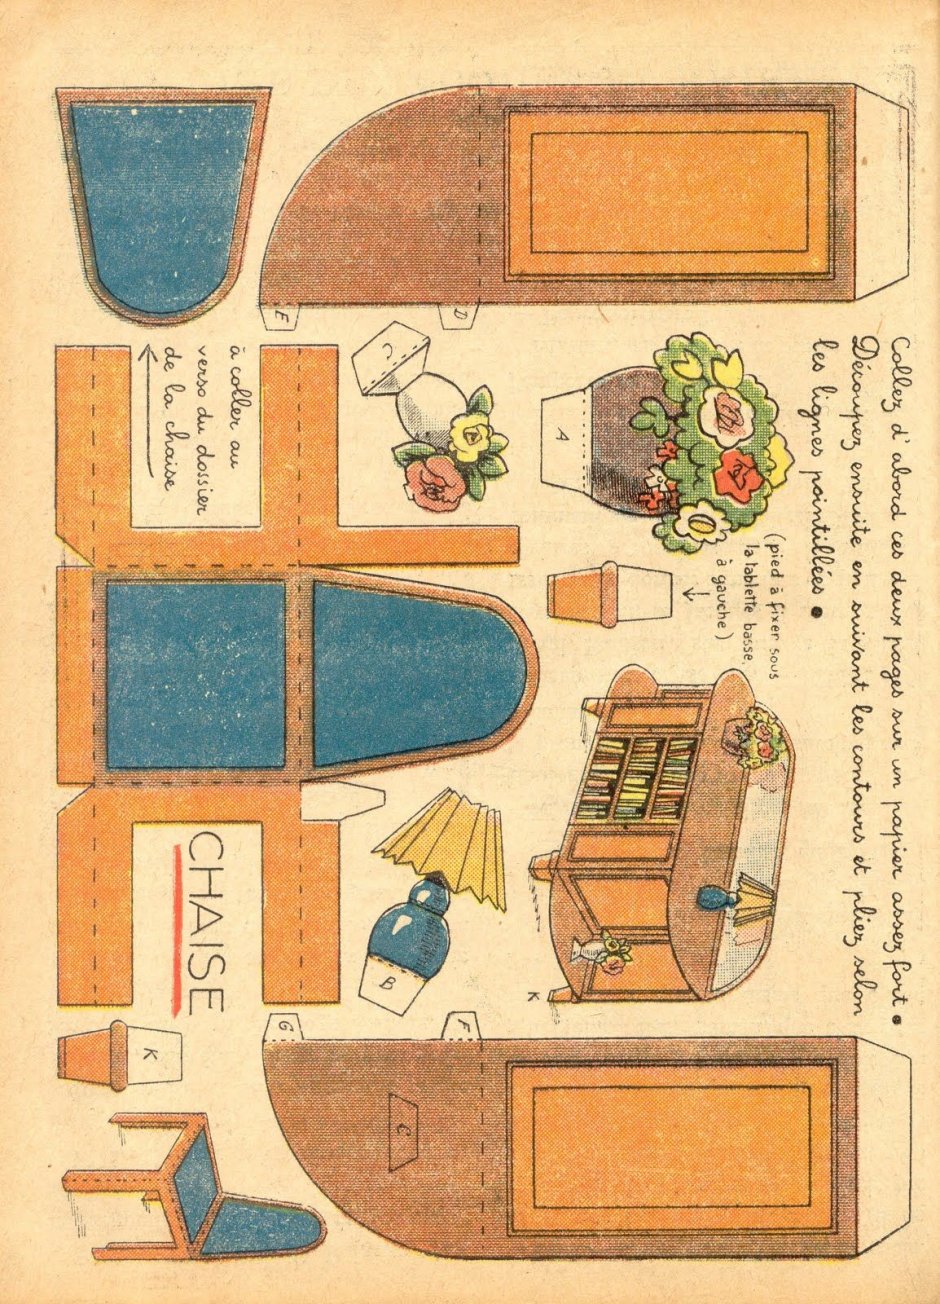 Collez d'abord ces deux pages sur un papier assez fort.
Découpez ensuite en suivant les contours et pliez selon
les lignes pointillées.
(pied à fixer sous
la tablette basse,
à gauche)
à coller au
verso du dossier
de la chaise
CHAISE
E
D
C
A
B
K
G
F
C
K